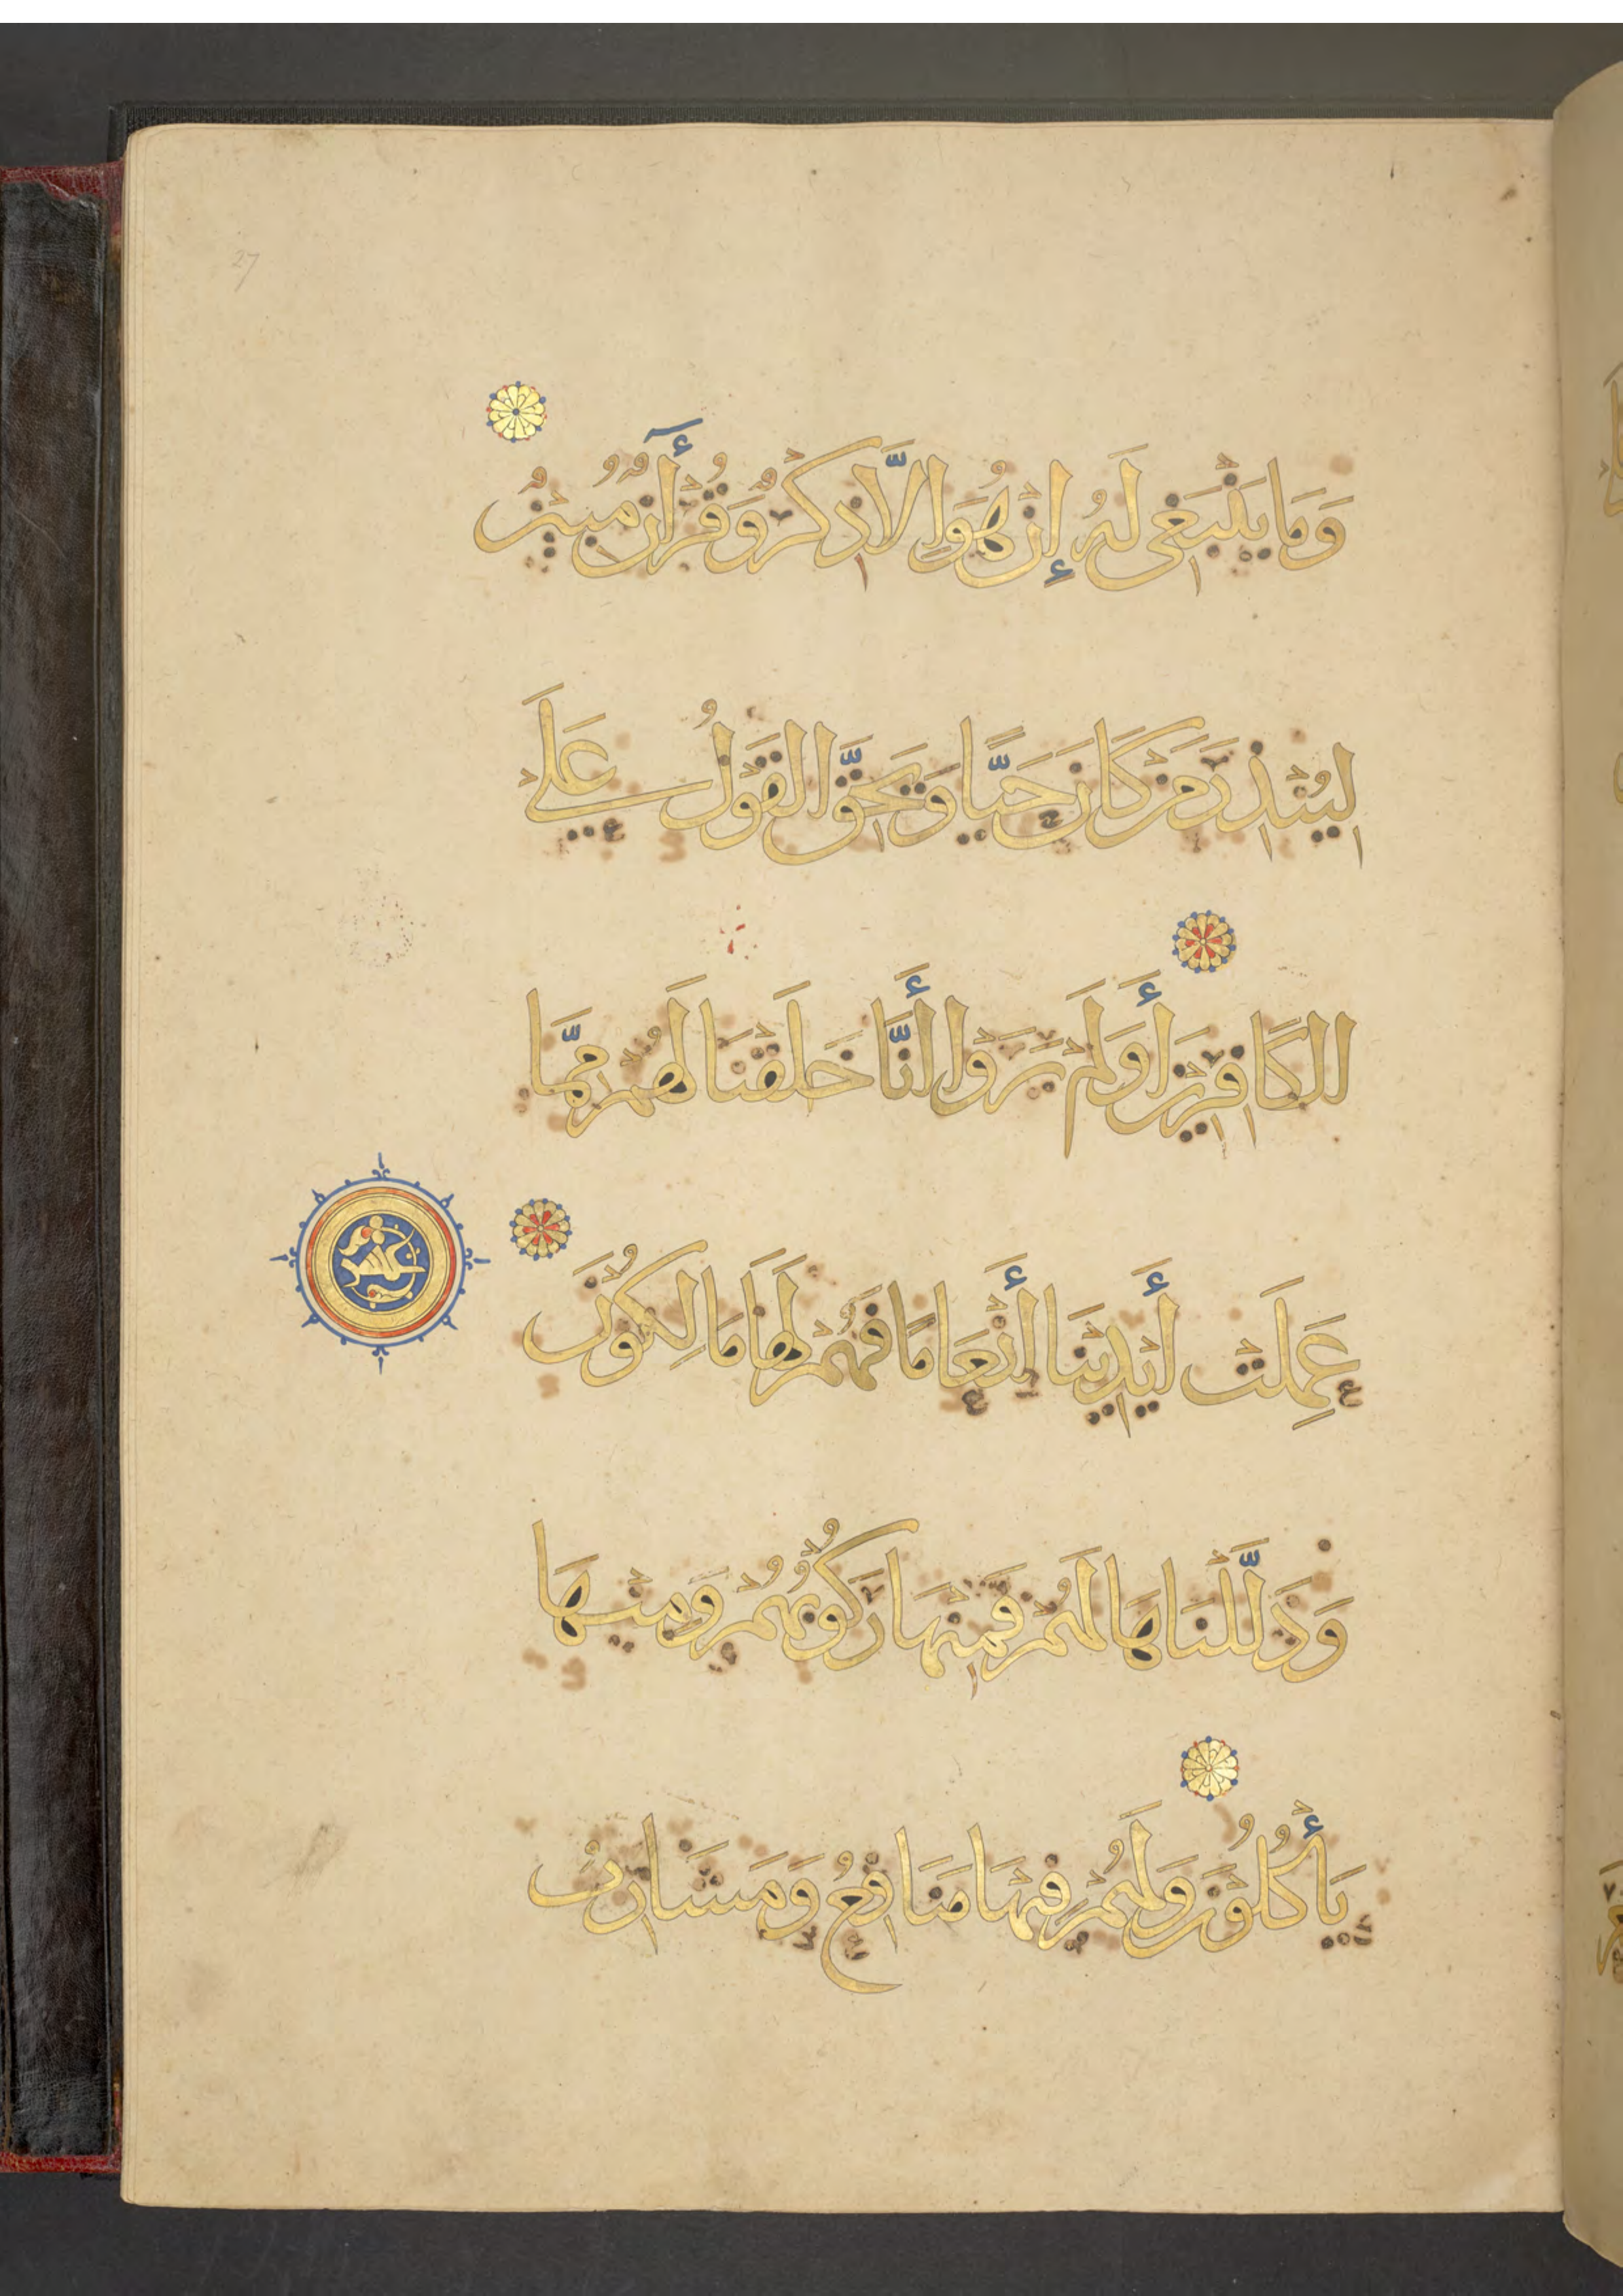 27
وَمَا يَنْبَغِي لَهُ إِنْ هُوَ إِلَّا ذِكْرٌ وَقُرْآنٌ مُبِينٌ
لِيُنْذِرَ مَنْ كَانَ حَيًّا وَيَحِقَّ الْقَوْلُ عَلَى
الْكَافِرِينَ أَوَلَمْ يَرَوْا أَنَّا خَلَقْنَا لَهُمْ مِمَّا
عَمِلَتْ أَيْدِينَا أَنْعَامًا فَهُمْ لَهَا مَالِكُونَ
عشر
وَذَلَّلْنَاهَا لَهُمْ فَمِنْهَا رَكُوبُهُمْ وَمِنْهَا
يَأْكُلُونَ وَلَهُمْ فِيهَا مَنَافِعُ وَمَشَارِبُ